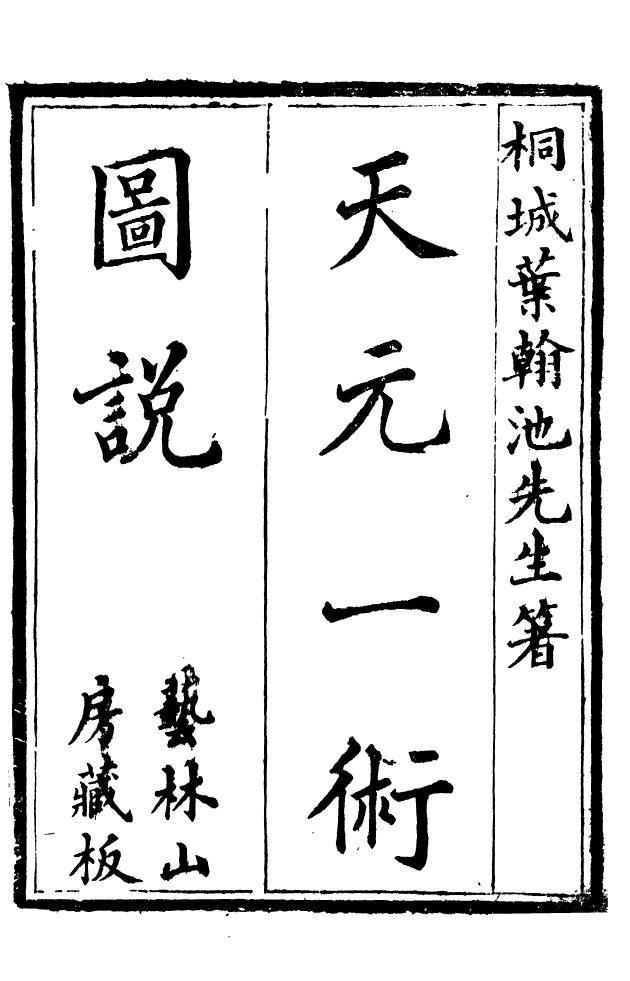 桐城葉翰池先生箸
天元一術
圖說
藝林山
房藏板